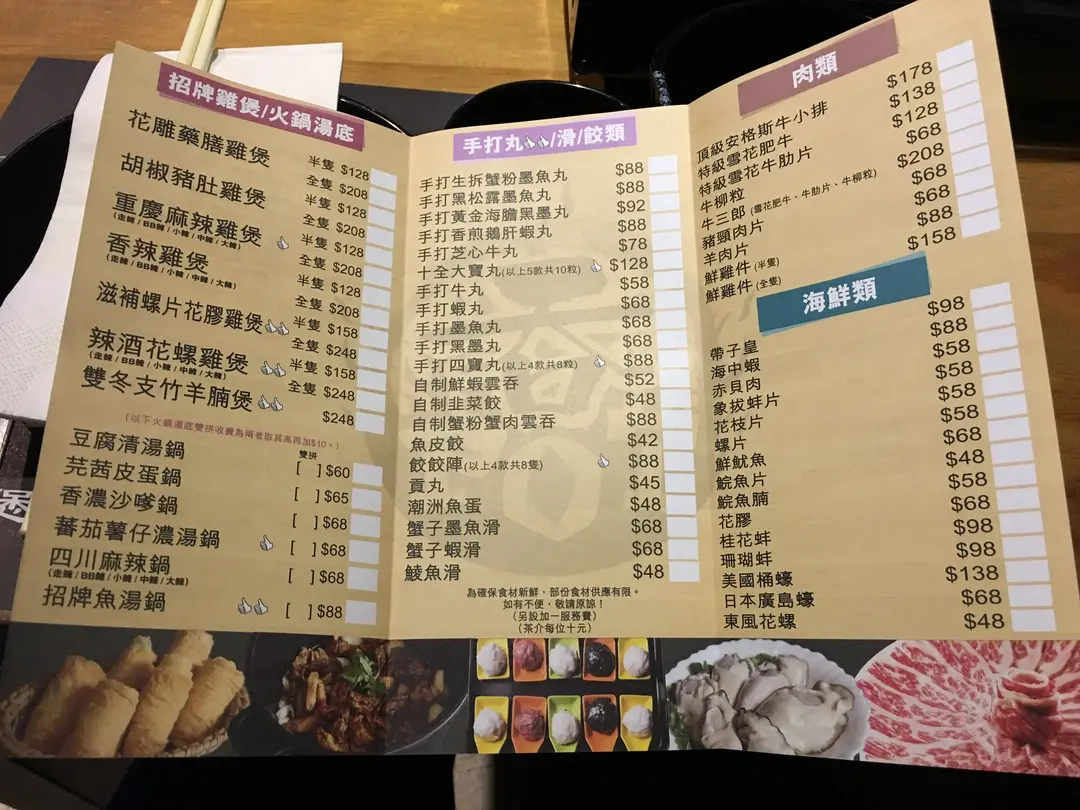 招牌雞煲/火鍋湯底
花雕藥膳雞煲 半隻 $128
全隻 $208
胡椒豬肚雞煲 半隻 $128
全隻 $208
重慶麻辣雞煲 半隻 $128
(走辣 / BB辣 / 小辣 / 中辣 / 大辣) 全隻 $208
香辣雞煲 半隻 $128
(走辣 / BB辣 / 小辣 / 中辣 / 大辣) 全隻 $208
滋補螺片花膠雞煲 半隻 $158
全隻 $248
辣酒花螺雞煲 半隻 $158
(走辣 / BB辣 / 小辣 / 中辣 / 大辣) 全隻 $248
雙冬支竹羊腩煲 $248
(以下火鍋湯底雙拼收費為兩者取其高再加$10。)
雙拼
豆腐清湯鍋 [ ] $60
芫茜皮蛋鍋 [ ] $65
香濃沙嗲鍋 [ ] $68
蕃茄薯仔濃湯鍋 [ ] $68
四川麻辣鍋 [ ] $68
(走辣 / BB辣 / 小辣 / 中辣 / 大辣)
招牌魚湯鍋 [ ] $88
手打丸/滑/餃類
手打生拆蟹粉墨魚丸 $88
手打黑松露墨魚丸 $88
手打黃金海膽黑墨丸 $92
手打香煎鵝肝蝦丸 $88
手打芝心牛丸 $78
十全大寶丸(以上5款共10粒) $128
手打牛丸 $58
手打蝦丸 $68
手打墨魚丸 $68
手打黑墨丸 $68
手打四寶丸(以上4款共8粒) $88
自制鮮蝦雲吞 $52
自制韭菜餃 $48
自制蟹粉蟹肉雲吞 $88
魚皮餃 $42
餃餃陣(以上4款共8隻) $88
貢丸 $45
潮洲魚蛋 $48
蟹子墨魚滑 $68
蟹子蝦滑 $68
鯪魚滑 $48
為確保食材新鮮，部份食材供應有限。
如有不便，敬請原諒！
(另設加一服務費)
(茶介每位十元)
肉類
頂級安格斯牛小排 $178
特級雪花肥牛 $138
特級雪花牛肋片 $128
牛柳粒 $68
牛三郎 (雪花肥牛、牛肋片、牛柳粒) $208
豬頸肉片 $68
羊肉片 $68
鮮雞件 (半隻) $88
鮮雞件 (全隻) $158
海鮮類
帶子皇 $98
海中蝦 $88
赤貝肉 $58
象拔蚌片 $58
花枝片 $58
螺片 $58
鮮魷魚 $68
鯇魚片 $48
鯇魚腩 $58
花膠 $68
桂花蚌 $98
珊瑚蚌 $98
美國桶蠔 $138
日本廣島蠔 $68
東風花螺 $48